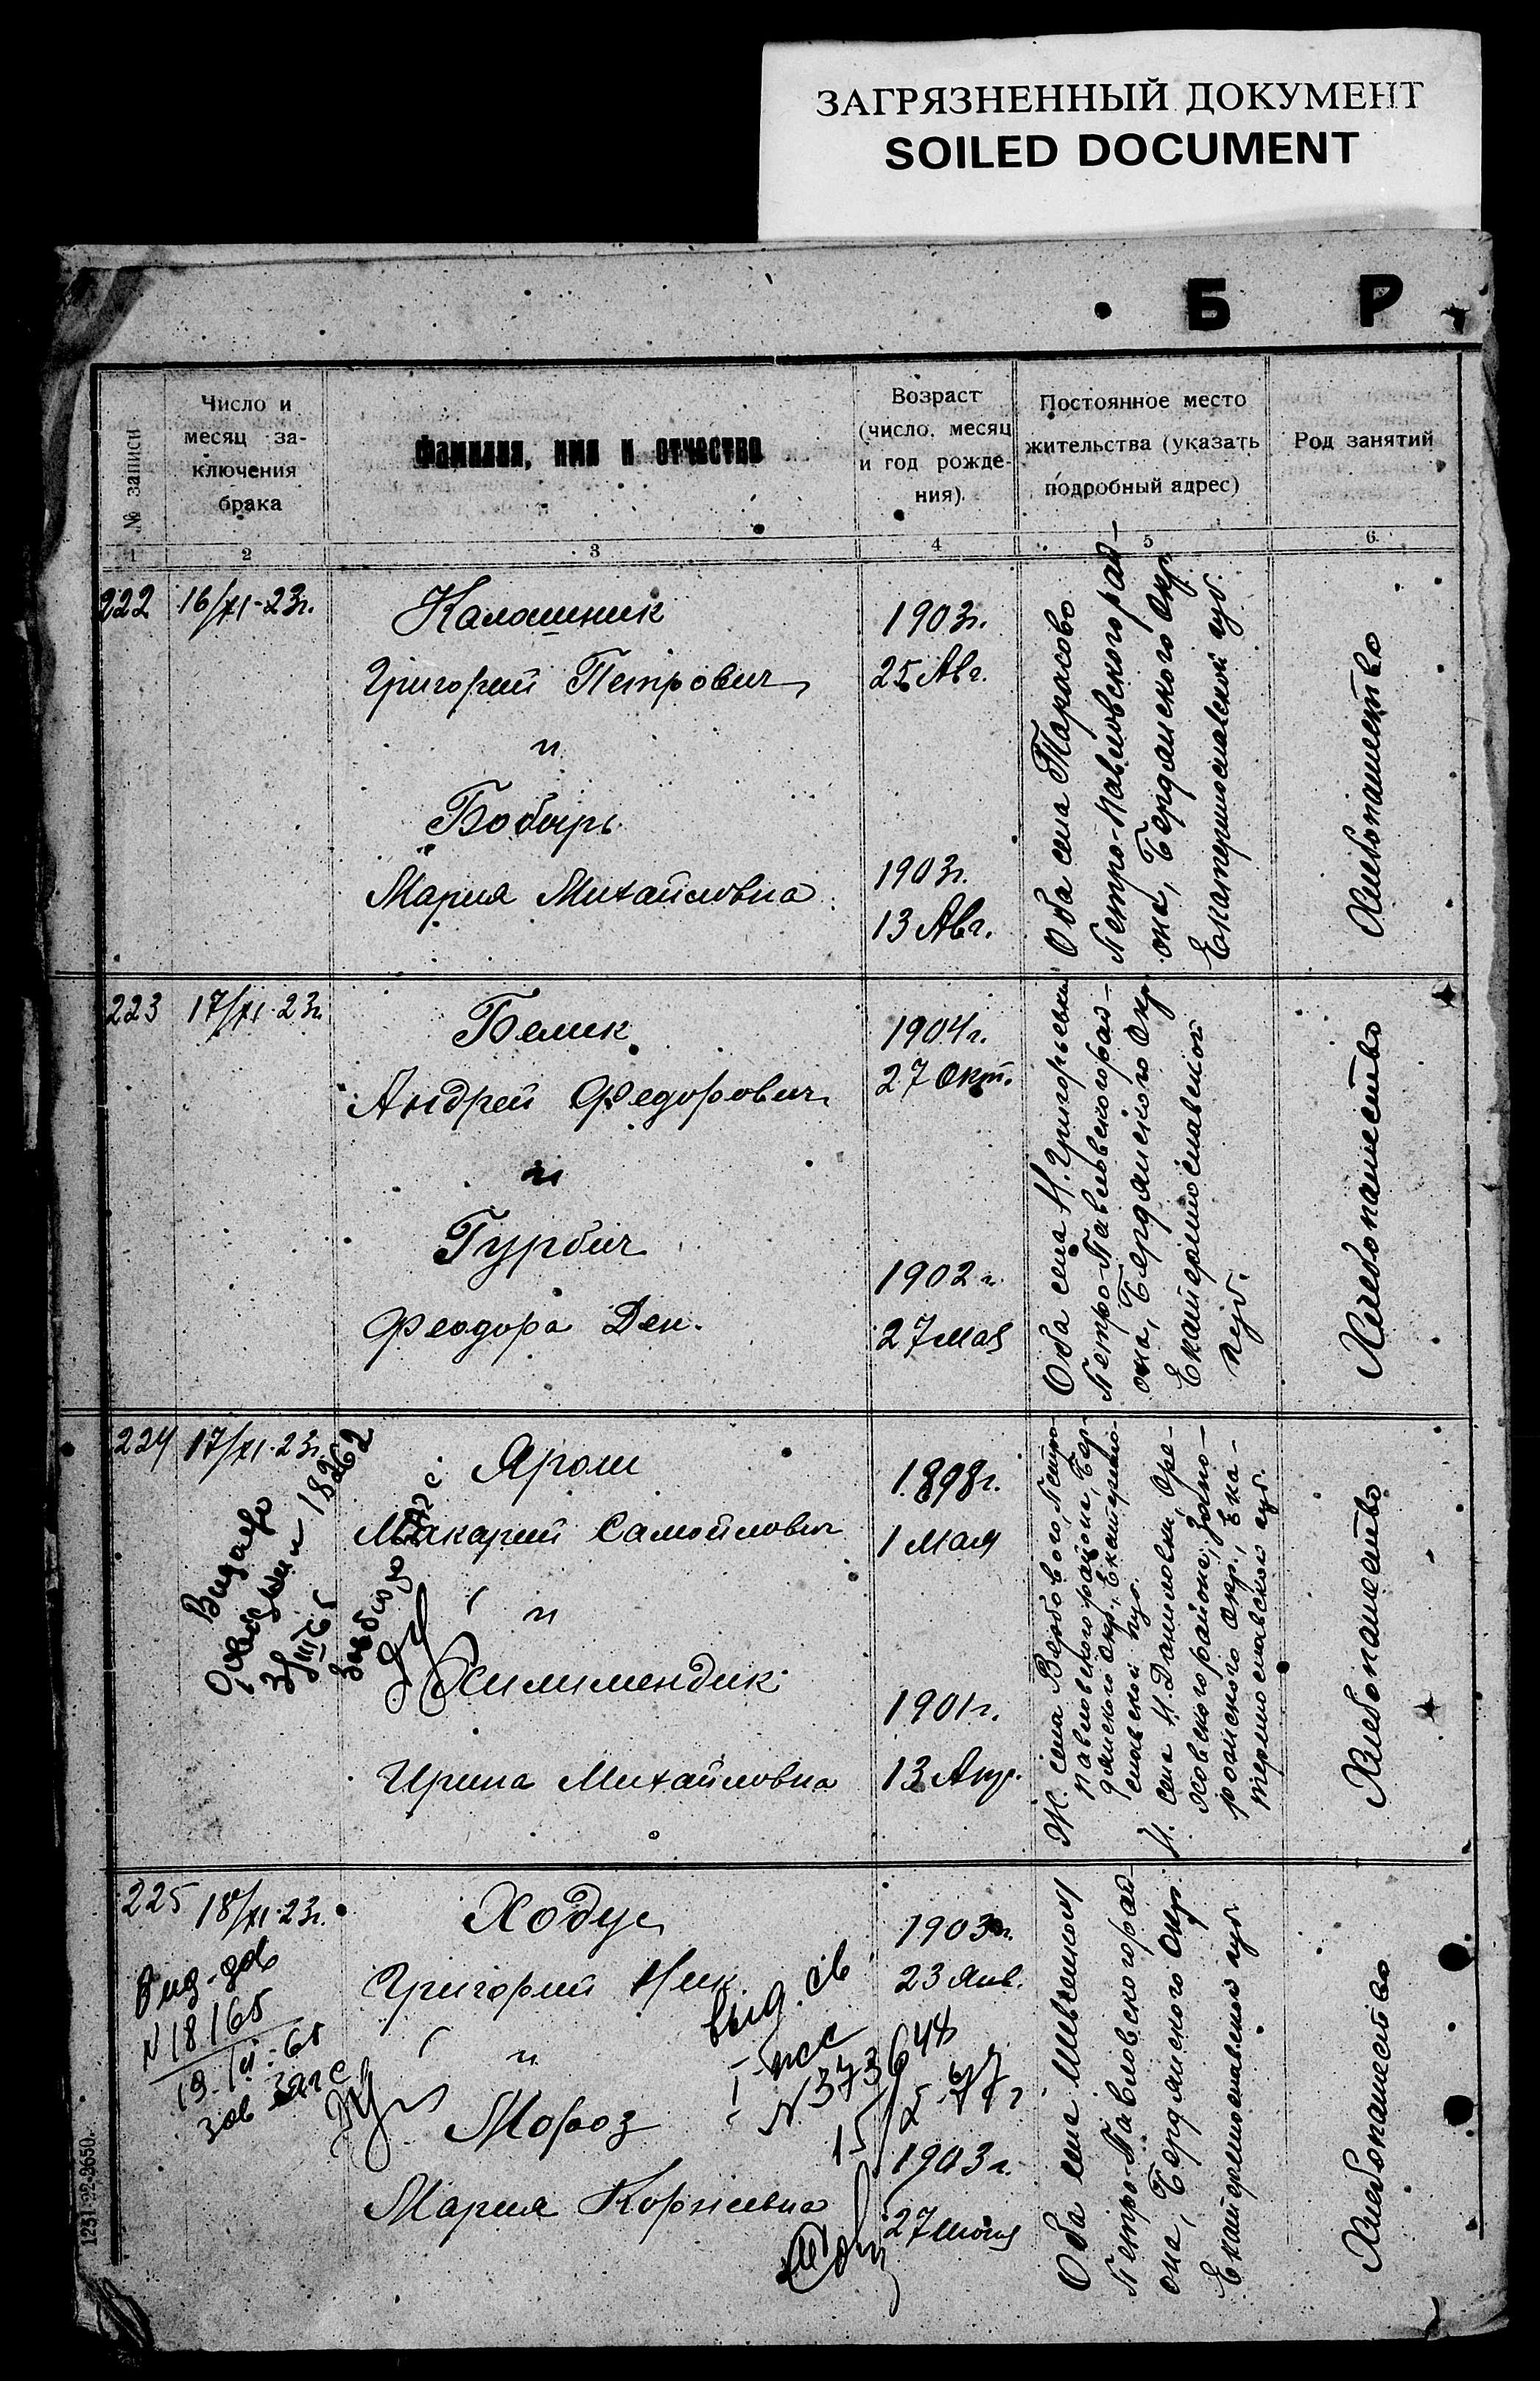 ЗАГРЯЗНЕННЫЙ ДОКУМЕНТ
SOILED DOCUMENT
Б Р
№ записи
Число и
месяц за-
ключения
брака
Фамилия, имя и отчество
Возраст
(число, месяц
и год рожде-
ния).
Постоянное место
жительства (указать
подробный адрес)
Род занятий
1 2 3 4 5 6
222
16/XI-23г.
Калашник
Григорий Петрович
и
Бобырь
Мария Михайловна
1903г.
25 Авг.
1903г.
13 Авг.
Оба села Тарасово
Петро-Павловского рай-
она, Бердянского Окр.
Екатеринославской губ.
Хлебопашество
223
17/XI-23г.
Белик
Андрей Федорович
и
Гурбич
Феодора Дем.
1904г.
27 Окт.
1902г.
27 мая
Оба села Н. Григорьевки
Петро-Павловского рай-
она, Бердянского Окр.
Екатеринославской
губ.
Хлебопашество
224
17/XI-23г.
Яром
Макарий Самойлович
и
Хилимендик
Ирина Михайловна
1898г.
1 мая
1901г.
13 Апр.
Ж. села Вербового, Петро-
павловского района, Бер-
дянского Окр., Екатерино-
славской губ.
Н. села Н. Даниловки, Оре-
ховского района, Запо-
рожского Окр., Ека-
теринославской губ.
Хлебопашество
225
18/XI-23г.
Ходус
Григорий Ник.
и
Мороз
Мария Корнеевна
1903г.
23 Янв.
1903г.
27 Июня
Вид-дов
N 18165
19-IV-65
зав загс
выд. св
I-жс
N 373648
Оба села Шевченково
Петро-Павловского рай-
она, Бердянского Окр.
Екатеринославской губ.
Хлебопашество
1251-22-3650.